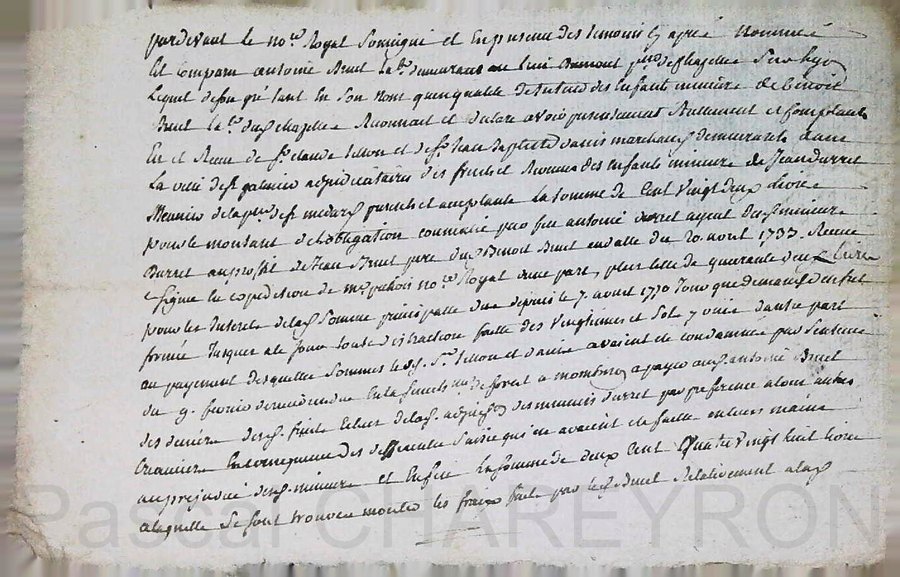 pardevant le no.re Royal Soussigné et En presence des temoins cy apres Nommés
fut comparu antoine Bruel lab.r demeurant au lieu p.sse de chapelle
Lequel de son gré tant En son nom qu'en qualité de tuteur des Enfants mineurs de benoit
Bruel lab.r dud. chapelle Reconnait et declare avoir presentement Reellement et Comptant
Eu et Receu de s.r claude tillon et de s.r Jean baptiste marchands demeurants dans
La ville de s.t galmier adjudicataires des fruits et Revenus des Enfants mineurs de Jean durret
Meunier de la p.sse de s.t medard presents et acceptants La somme de Cent vingt deux livres
pour le montant de l'obligation consentie par feu antoine durret ayeul des d. mineurs
Durret au profit de Jean Bruel pere dud. Benoit Bruel en datte du 20. avril 1733. Receue
et Signée En expedition de m.e no.re Royal d'une part, plus celle de quarante deux Livres
pour les Interets de lad. Somme principalle depuis le 7. avril 1770 Jour que demande en fut
formée Jusques a ce jour sous distraction faitte des vingtiemes et Sols y unis d'autre part
au payement desquelles Sommes lesd. S.rs tillon et avaient été condamnés par Sentence
du 9. fevrier dernier rendue En la Senech.ée de forest a montbrison a payer aud. antoine Bruel
des deniers desd. fruits Echus de lad. des mineurs durret par preference a tous autres
Creanciers Nonobstant des differentes Saisies qui en avaient été faittes en leurs mains
au prejudice desd. mineurs et Enfin La somme de deux Cent Quatre vingt huit livres
a laquelle Se sont trouvés monter les fraix faits par led. Bruel Relativement a lad.
Pascal CHAREYRON